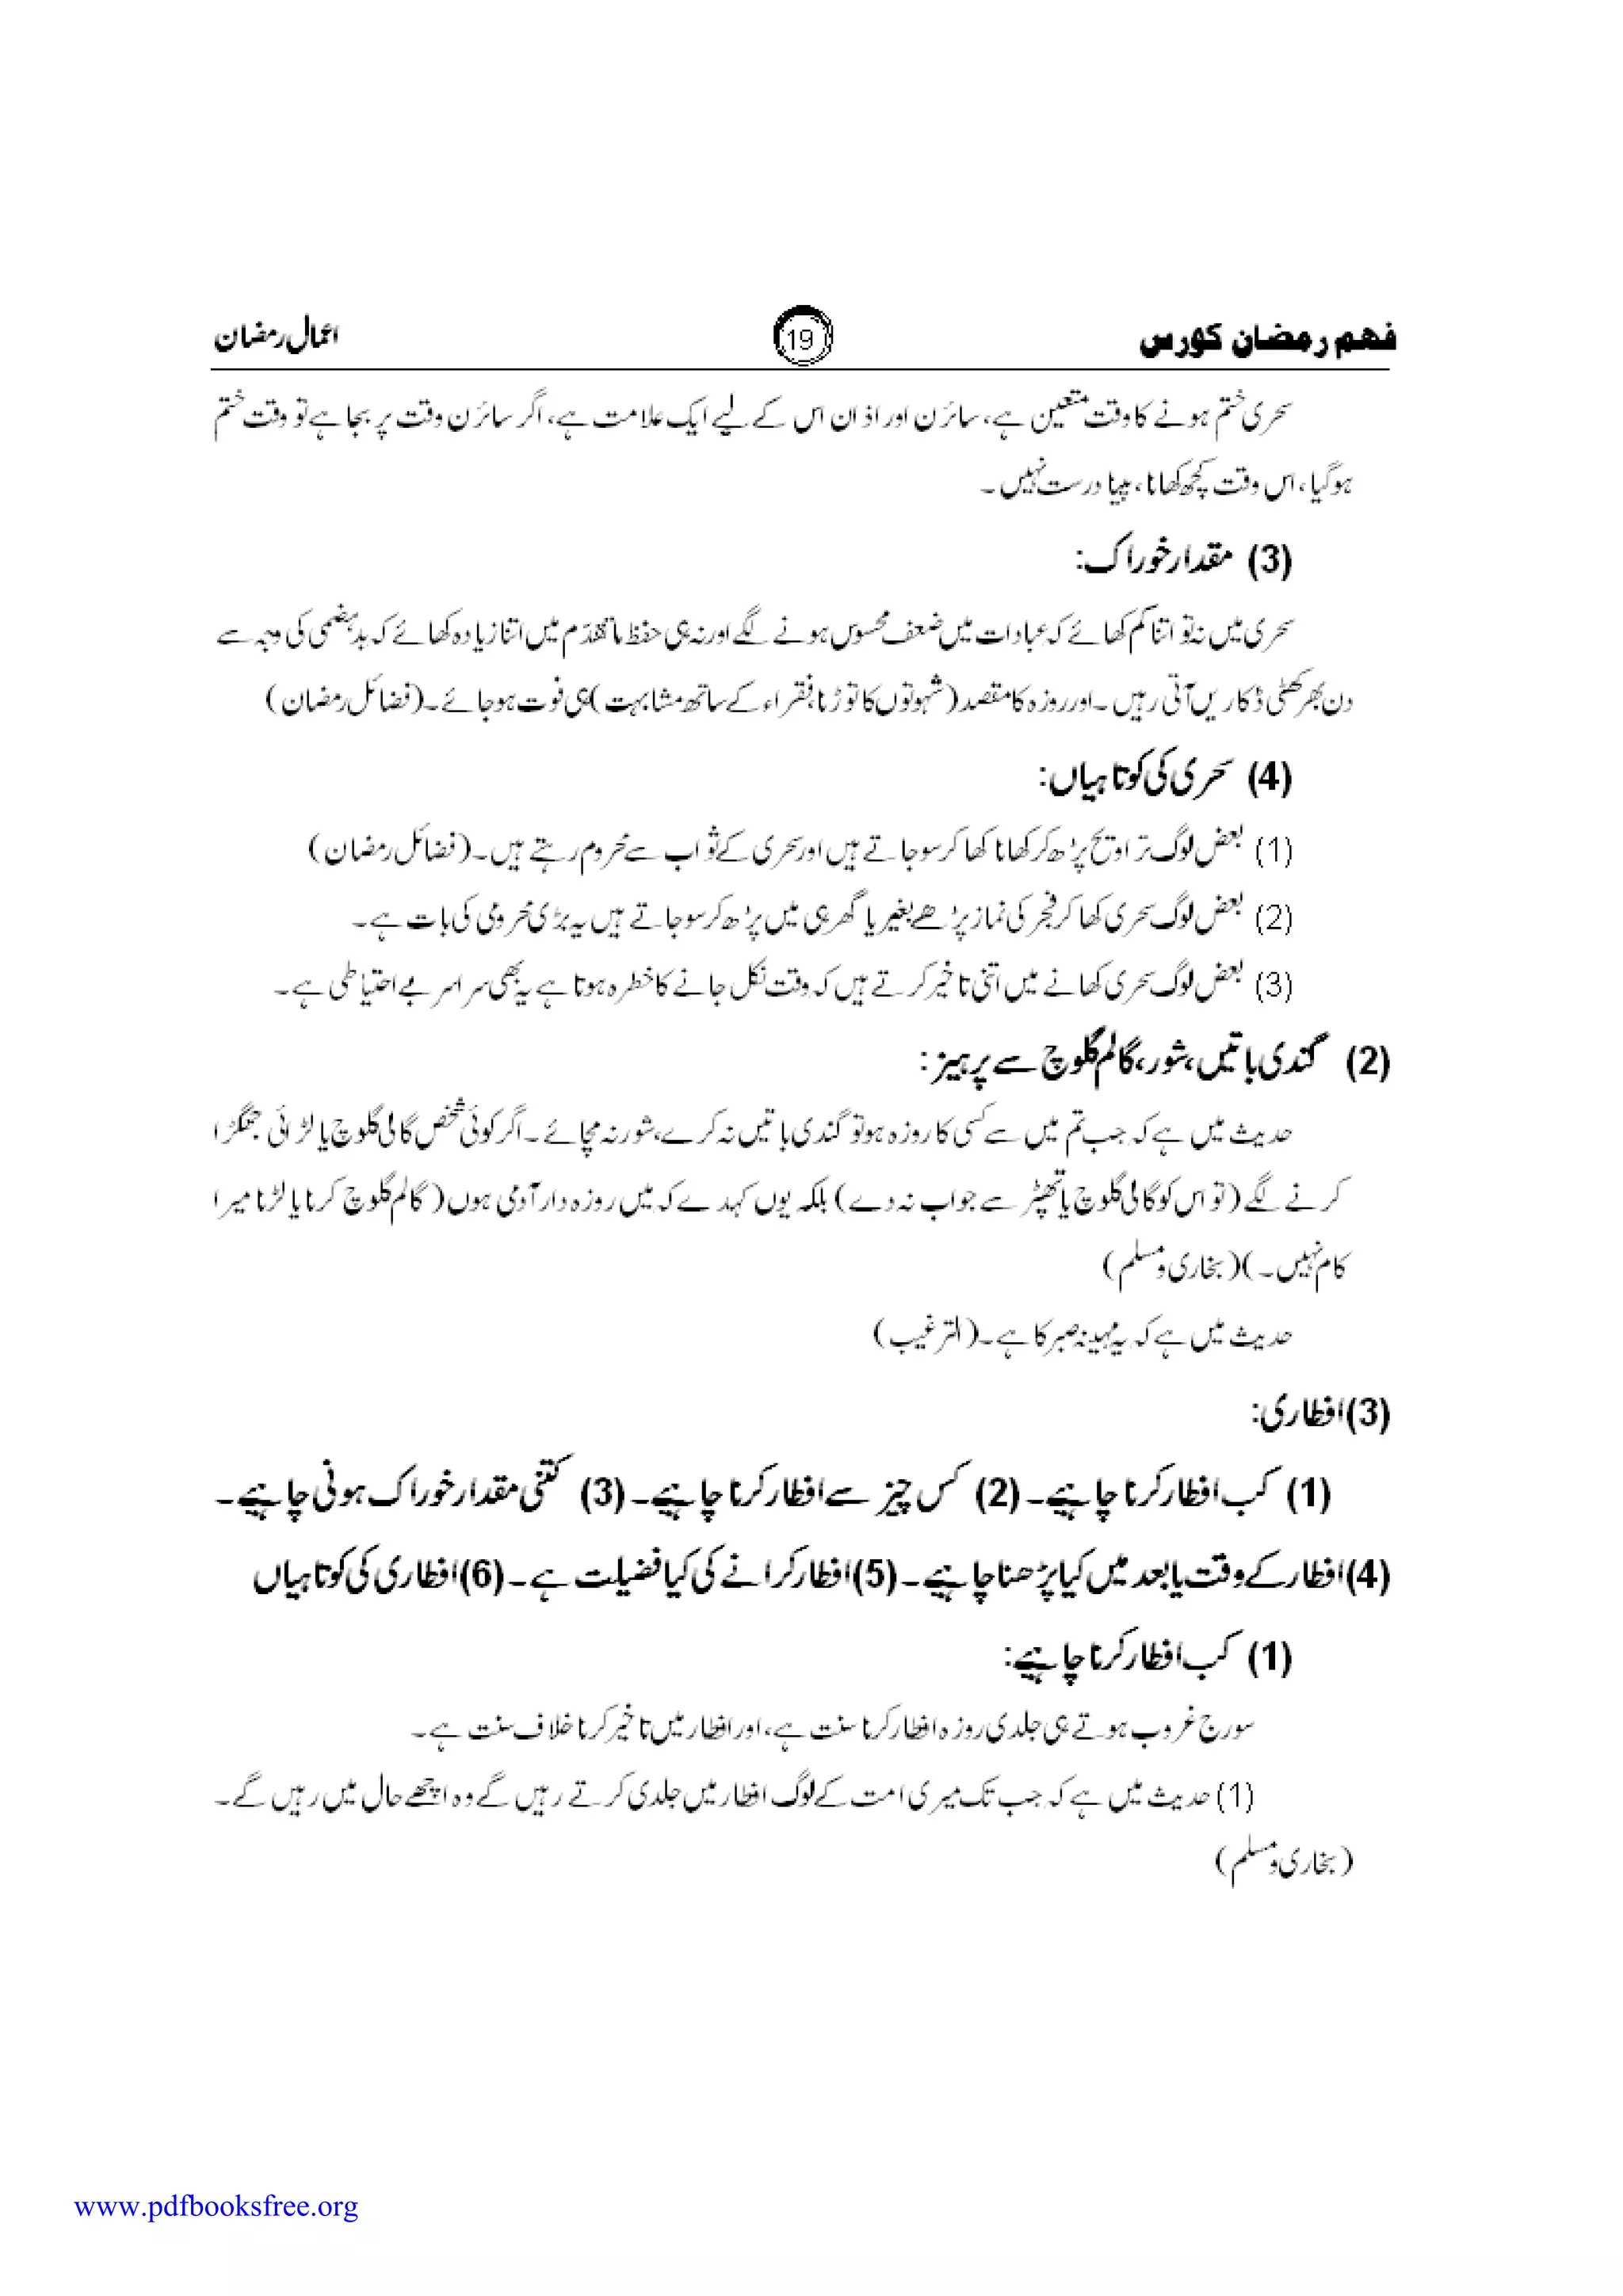 فہم رمضان کورس 19 اعمال رمضان
سحری ختم ہونے کا وقت متعین ہے، سائرن اور اذان اس کے لیے ایک علامت ہے، اگر سائرن وقت پر بجا ہے تو وقت ختم
ہوگیا، اس وقت کچھ کھانا، پینا درست نہیں۔
(3) مقدار خوراک:
سحری میں نہ تو اتنا کم کھائے کہ عبادات میں ضعف محسوس ہونے لگے اور نہ ہی حفظ ما تقدّم میں اتنا زیادہ کھائے کہ بدہضمی کی وجہ سے
دن بھر کھٹی ڈکاریں آتی رہیں۔ اور روزہ کا مقصد (شہوتوں کا توڑنا، فقراء کے ساتھ مشابہت) ہی فوت ہو جائے۔ (فضائل رمضان)
(4) سحری کی کوتاہیاں:
(1) بعض لوگ تراویح پڑھ کر کھانا کھا کر سو جاتے ہیں اور سحری کے ثواب سے محروم رہتے ہیں۔ (فضائل رمضان)
(2) بعض لوگ سحری کھا کر فجر کی نماز پڑھے بغیر یا گھر ہی میں پڑھ کر سو جاتے ہیں یہ بڑی محرومی کی بات ہے۔
(3) بعض لوگ سحری کھانے میں اتنی تاخیر کرتے ہیں کہ وقت نکل جانے کا خطرہ ہوتا ہے یہ بھی سراسر بے احتیاطی ہے۔
(2) گندی باتیں، شور، گالم گلوچ سے پرہیز:
حدیث میں ہے کہ جب تم میں سے کسی کا روزہ ہو تو گندی باتیں نہ کرے، شور نہ مچائے۔ اگر کوئی شخص گالی گلوچ یا لڑائی جھگڑا
کرنے لگے (تو اس کو گالی گلوچ یا تھپڑ سے جواب نہ دے) بلکہ یوں کہدے کہ میں روزہ دار آدمی ہوں (گالم گلوچ کرنا یا لڑنا میرا
کام نہیں۔) (بخاری و مسلم)
حدیث میں ہے کہ یہ مہینہ صبر کا ہے۔ (الترغیب)
(3) افطاری:
(1) کب افطار کرنا چاہیے۔ (2) کس چیز سے افطار کرنا چاہیے۔ (3) کتنی مقدار خوراک ہونی چاہیے۔
(4) افطار کے وقت یا بعد میں کیا پڑھنا چاہیے۔ (5) افطار کرانے کی کیا فضیلت ہے۔ (6) افطاری کی کوتاہیاں
(1) کب افطار کرنا چاہیے:
سورج غروب ہوتے ہی جلدی روزہ افطار کرنا سنت ہے، اور افطار میں تاخیر کرنا خلاف سنت ہے۔
(1) حدیث میں ہے کہ جب تک میری امت کے لوگ افطار میں جلدی کرتے رہیں گے وہ اچھے حال میں رہیں گے۔
(بخاری و مسلم)
www.pdfbooksfree.org